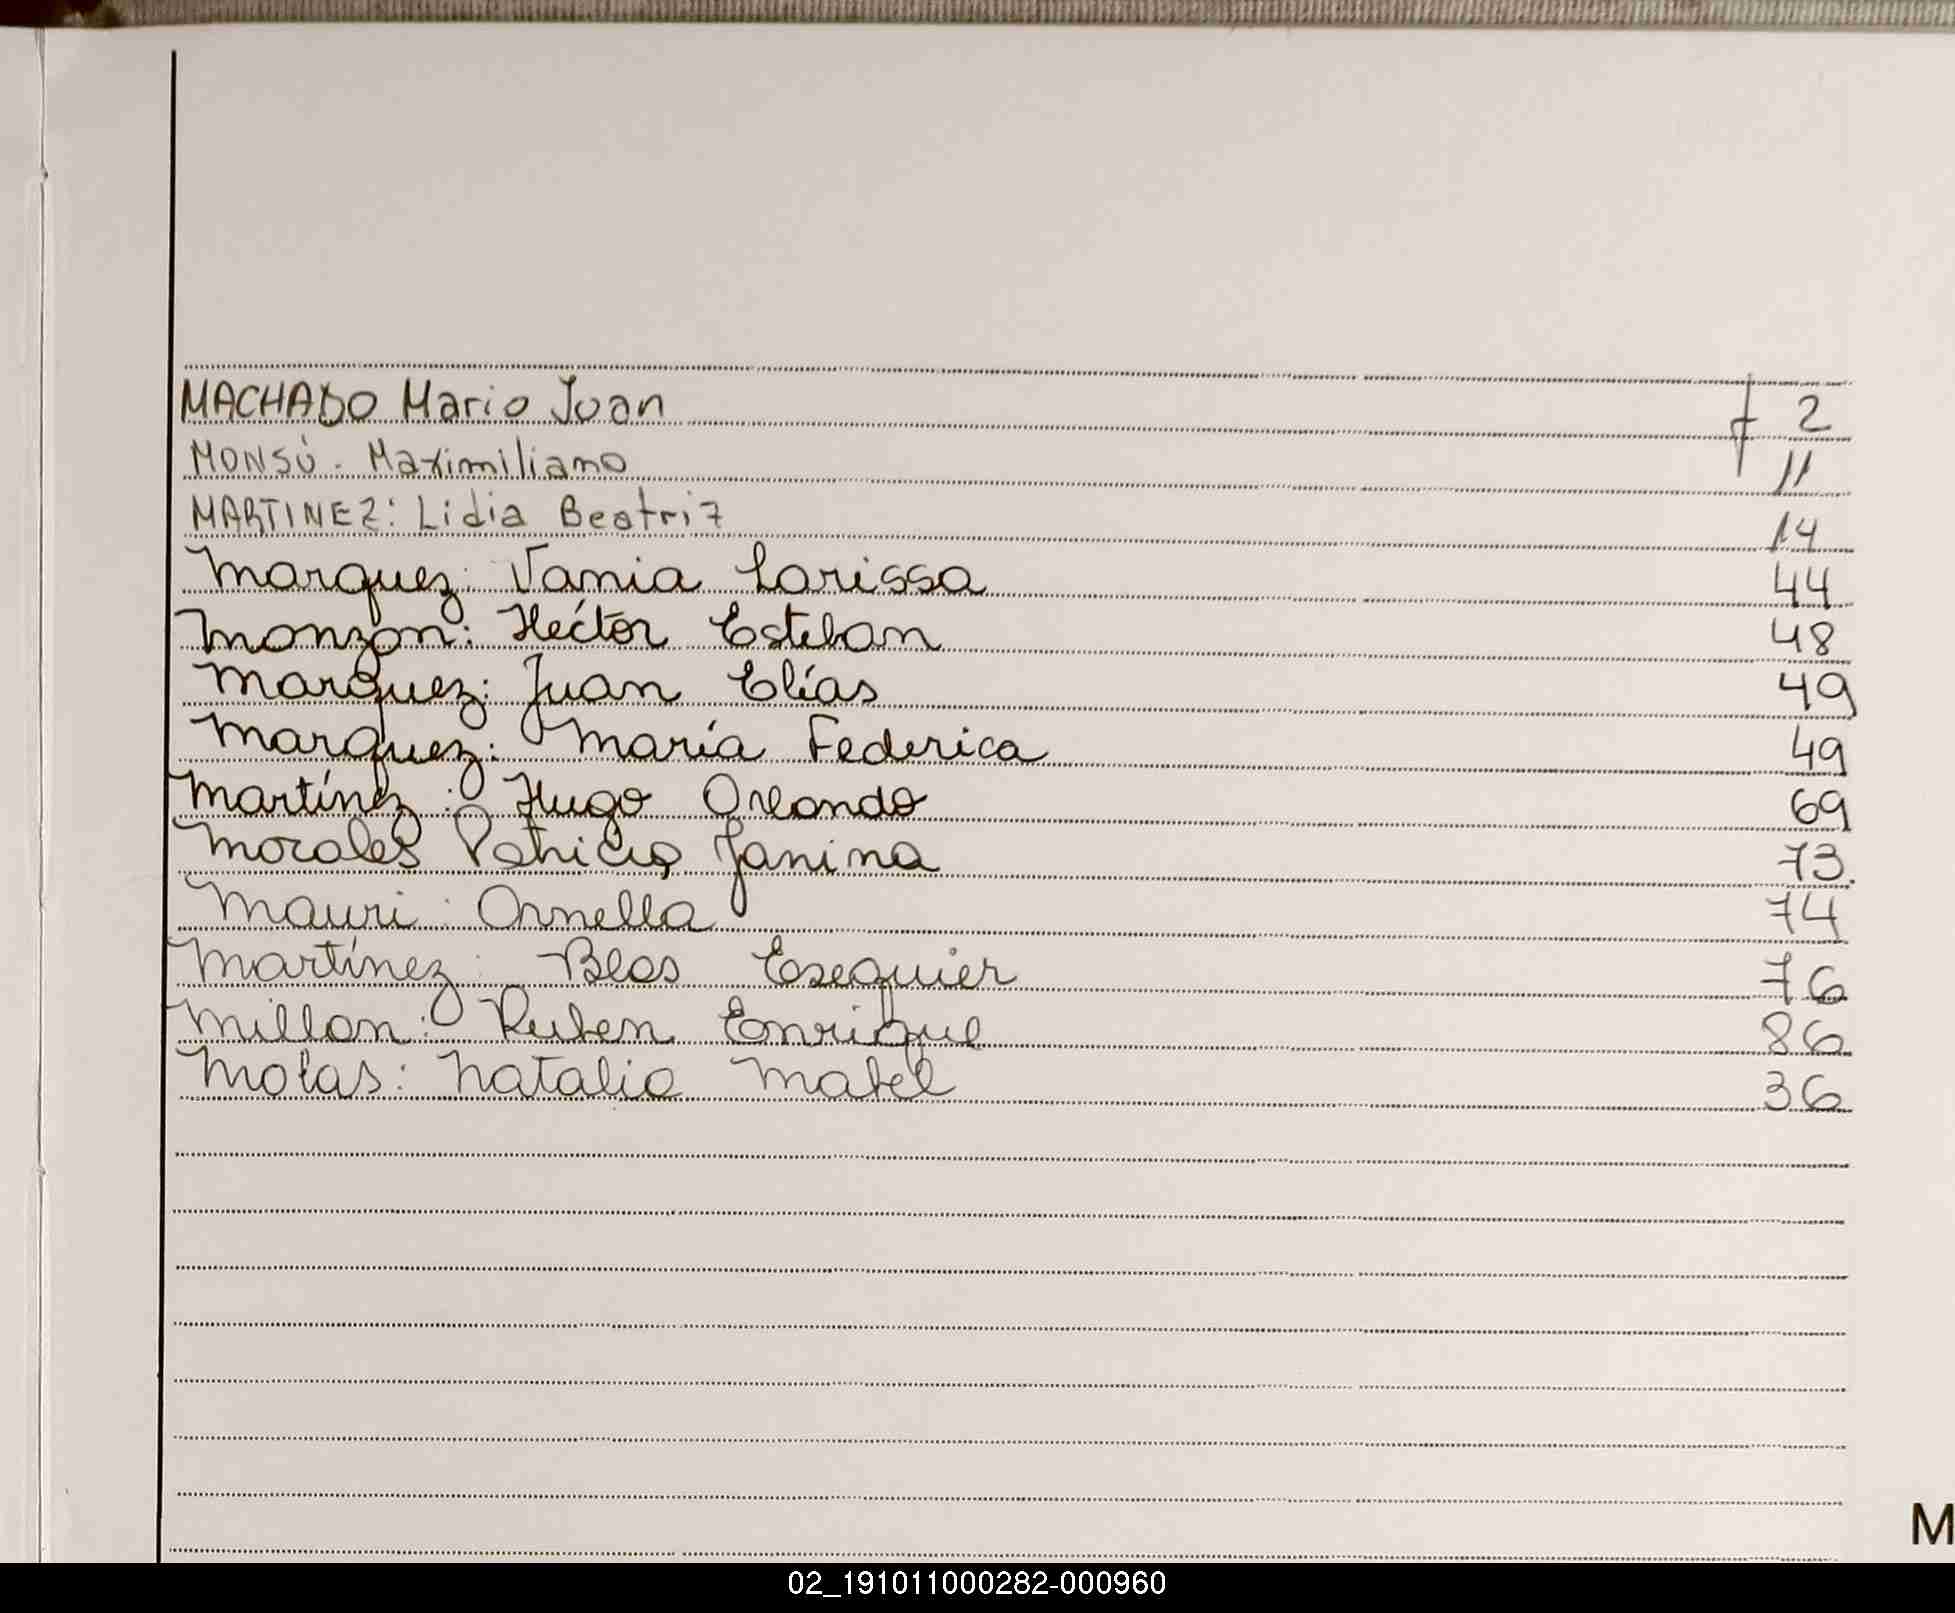 MACHADO Mario Juan f 2
MONSÚ. Maximiliano 11
MARTINEZ: Lidia Beatriz 14
Marquez: Vania Larissa 44
Monzon: Héctor Esteban 48
Marquez: Juan Elías 49
Marquez: María Federica 49
Martínez: Hugo Orlando 69
Morales Patricia Janina 73.
Mauri: Ornella 74
Martínez: Blas Esequier 76
Millan: Ruben Enrique 86
Molas: Natalia Mabel 36
M
02_191011000282-000960